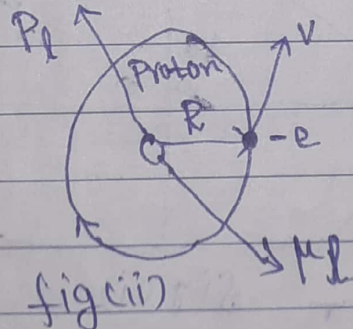 Pℓ
V
Proton
R
-e
μℓ
fig(ii)